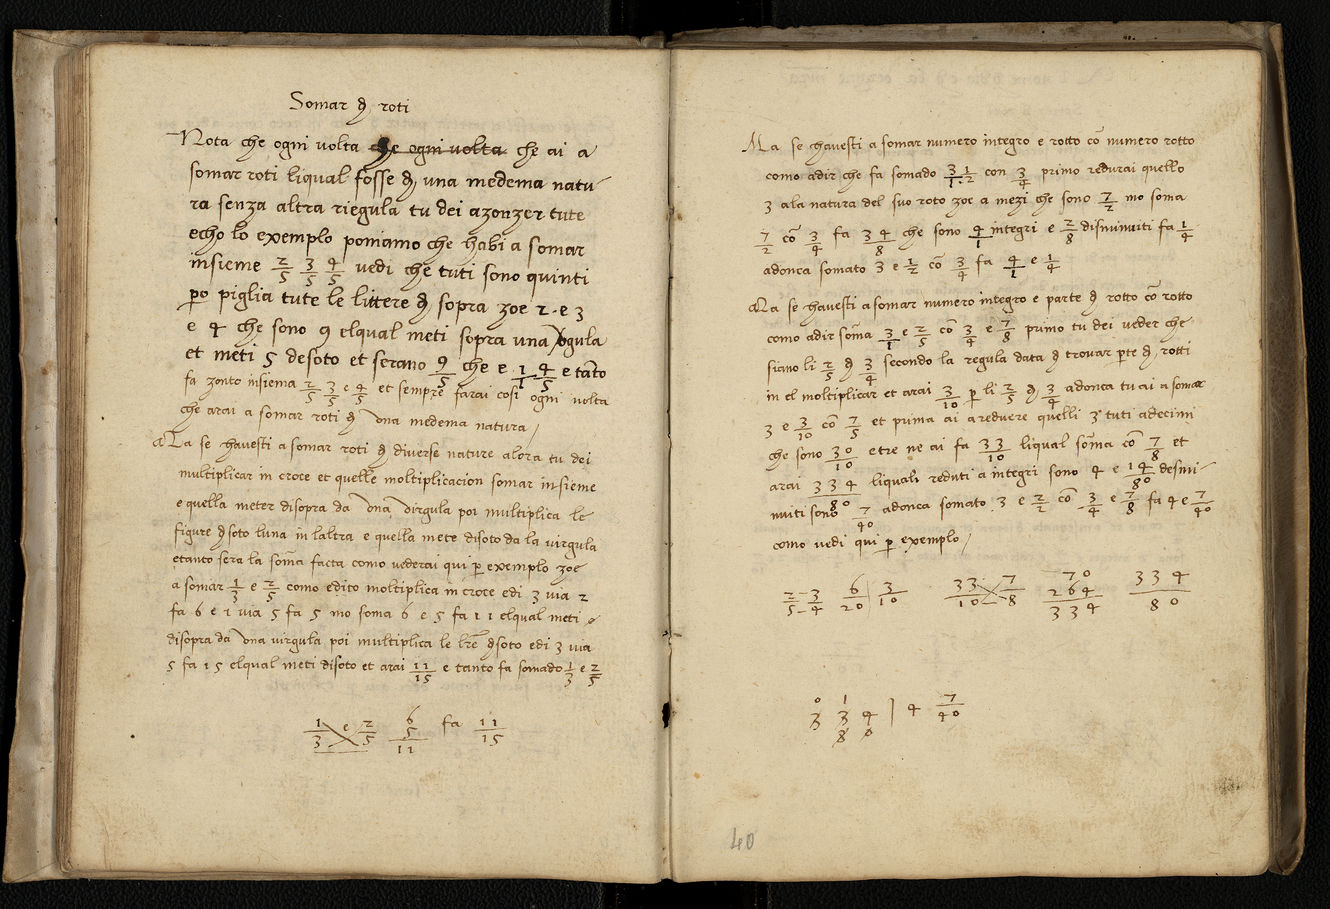 Somar d roti
Nota che ogni volta che ogni volta che ai a
somar roti liqual fosse d una medema natu
ra senza altra riegula tu dei azonzer tute
echo lo exemplo poniamo che habi a somar
insieme 2/5 3/5 4/5 vedi che tuti sono quinti
po piglia tute le littere d sopra zoe 2 · e 3
e 4 che sono 9 elqual meti sopra una virgula
et meti 5 desoto et serano 9/5 che e 1/1 4/5 e tanto
fa zonto insiema 2/5 3/5 e 4/5 et sempre farai cosi ogni volta
che arai a somar roti d una medema natura /
Ma se havesti a somar roti d diverse nature alora tu dei
multiplicar in croce et quelle moltiplicacion somar insieme
e quella meter disopra da una virgula poi multiplica le
figure dsoto luna in laltra e quella mete disoto da la virgula
etanto sera la soma facta como vederai qui p exemplo zoe
a somar 1/3 e 2/5 como edito moltiplica in croce edi 3 via 2
fa 6 e 1 via 5 fa 5 mo soma 6 e 5 fa 11 elqual meti
disopra da una virgula poi multiplica le lre dsoto edi 3 via
5 fa 15 elqual meti disoto et arai 11/15 e tanto fa somado 1/3 e 2/5
1/3 e 2/5 6 5 11 fa 11/15
Ma se havesti a somar numero integro e rotto co numero rotto
como adir che fa somado 3/1 · 1/2 con 3/4 primo redurai quello
3 ala natura del suo roto zoe a mezi che sono 7/2 mo soma
7/2 co 3/4 fa 34/8 che sono 4/1 integri e 2/8 disminuiti fa 1/4
adonca somato 3 e 1/2 co 3/4 fa 4/1 e 1/4
Ma se havesti a somar numero integro e parte d rotto co rotto
como adir soma 3/1 e 2/5 co 3/4 e 7/8 primo tu dei veder che
siano li 2/5 d 3/4 secondo la regula data d trovar pte d rotti
in el moltiplicar et arai 3/10 p li 2/5 d 3/4 adonca tu ai a somar
3 e 3/10 co 7/5 et prima ai a redurre quelli 3 tuti a decimi
che sono 30/10 etre ne ai fa 33/10 liqual soma co 7/8 et
arai 334/80 liquali reduti a integri sono 4 e 14/80 desmi
nuiti sono 7/40 adonca somato 3 e 2/2 co 3/4 e 7/8 fa 4 e 7/40
como vedi qui p exemplo /
2/5 3/4 6/20 3/10 33/10 7/8 70 264 334 334/80
0 1
3 3 4 | 4 7/40
8 0
40